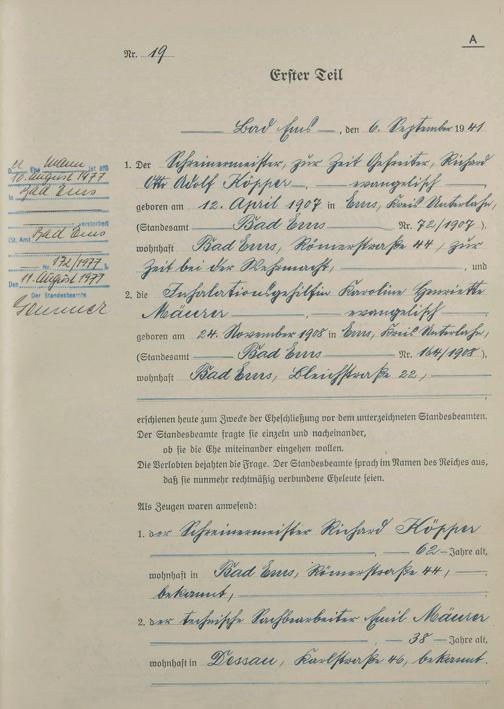 A
Nr. 19
Erster Teil
Bad Ems, den 6. September 1941
1. Der Schreinermeister, zur Zeit Gefreiter, Richard
Otto Adolf Köpper, evangelisch
geboren am 12. April 1907 in Ems, Kreis Unterlahn,
(Standesamt Bad Ems Nr. 72/1907),
wohnhaft Bad Ems, Römerstraße 44, zur
Zeit bei der Wehrmacht, und
2. die Inhalationsgehilfin Karoline Henriette
Mäurer, evangelisch
geboren am 24. November 1908 in Ems, Kreis Unterlahn,
(Standesamt Bad Ems Nr. 164/1908),
wohnhaft Bad Ems, Bleichstraße 22,
erschienen heute zum Zwecke der Eheschließung vor dem unterzeichneten Standesbeamten.
Der Standesbeamte fragte sie einzeln und nacheinander,
ob sie die Ehe miteinander eingehen wollen.
Die Verlobten bejahten die Frage. Der Standesbeamte sprach im Namen des Reiches aus,
daß sie nunmehr rechtmäßig verbundene Eheleute seien.
Als Zeugen waren anwesend:
1. der Schreinermeister Richard Köpper
, 62 Jahre alt,
wohnhaft in Bad Ems, Römerstraße 44,
bekannt,
2. der technische Sachbearbeiter Emil Mäurer
, 38 Jahre alt,
wohnhaft in Dessau, Karlstraße 46, bekannt.
Ehemann ist am
10. August 1977
in Bad Ems
verstorben
(St. Amt Bad Ems
Nr. 172/1977
Den 11. August 1977
Der Standesbeamte